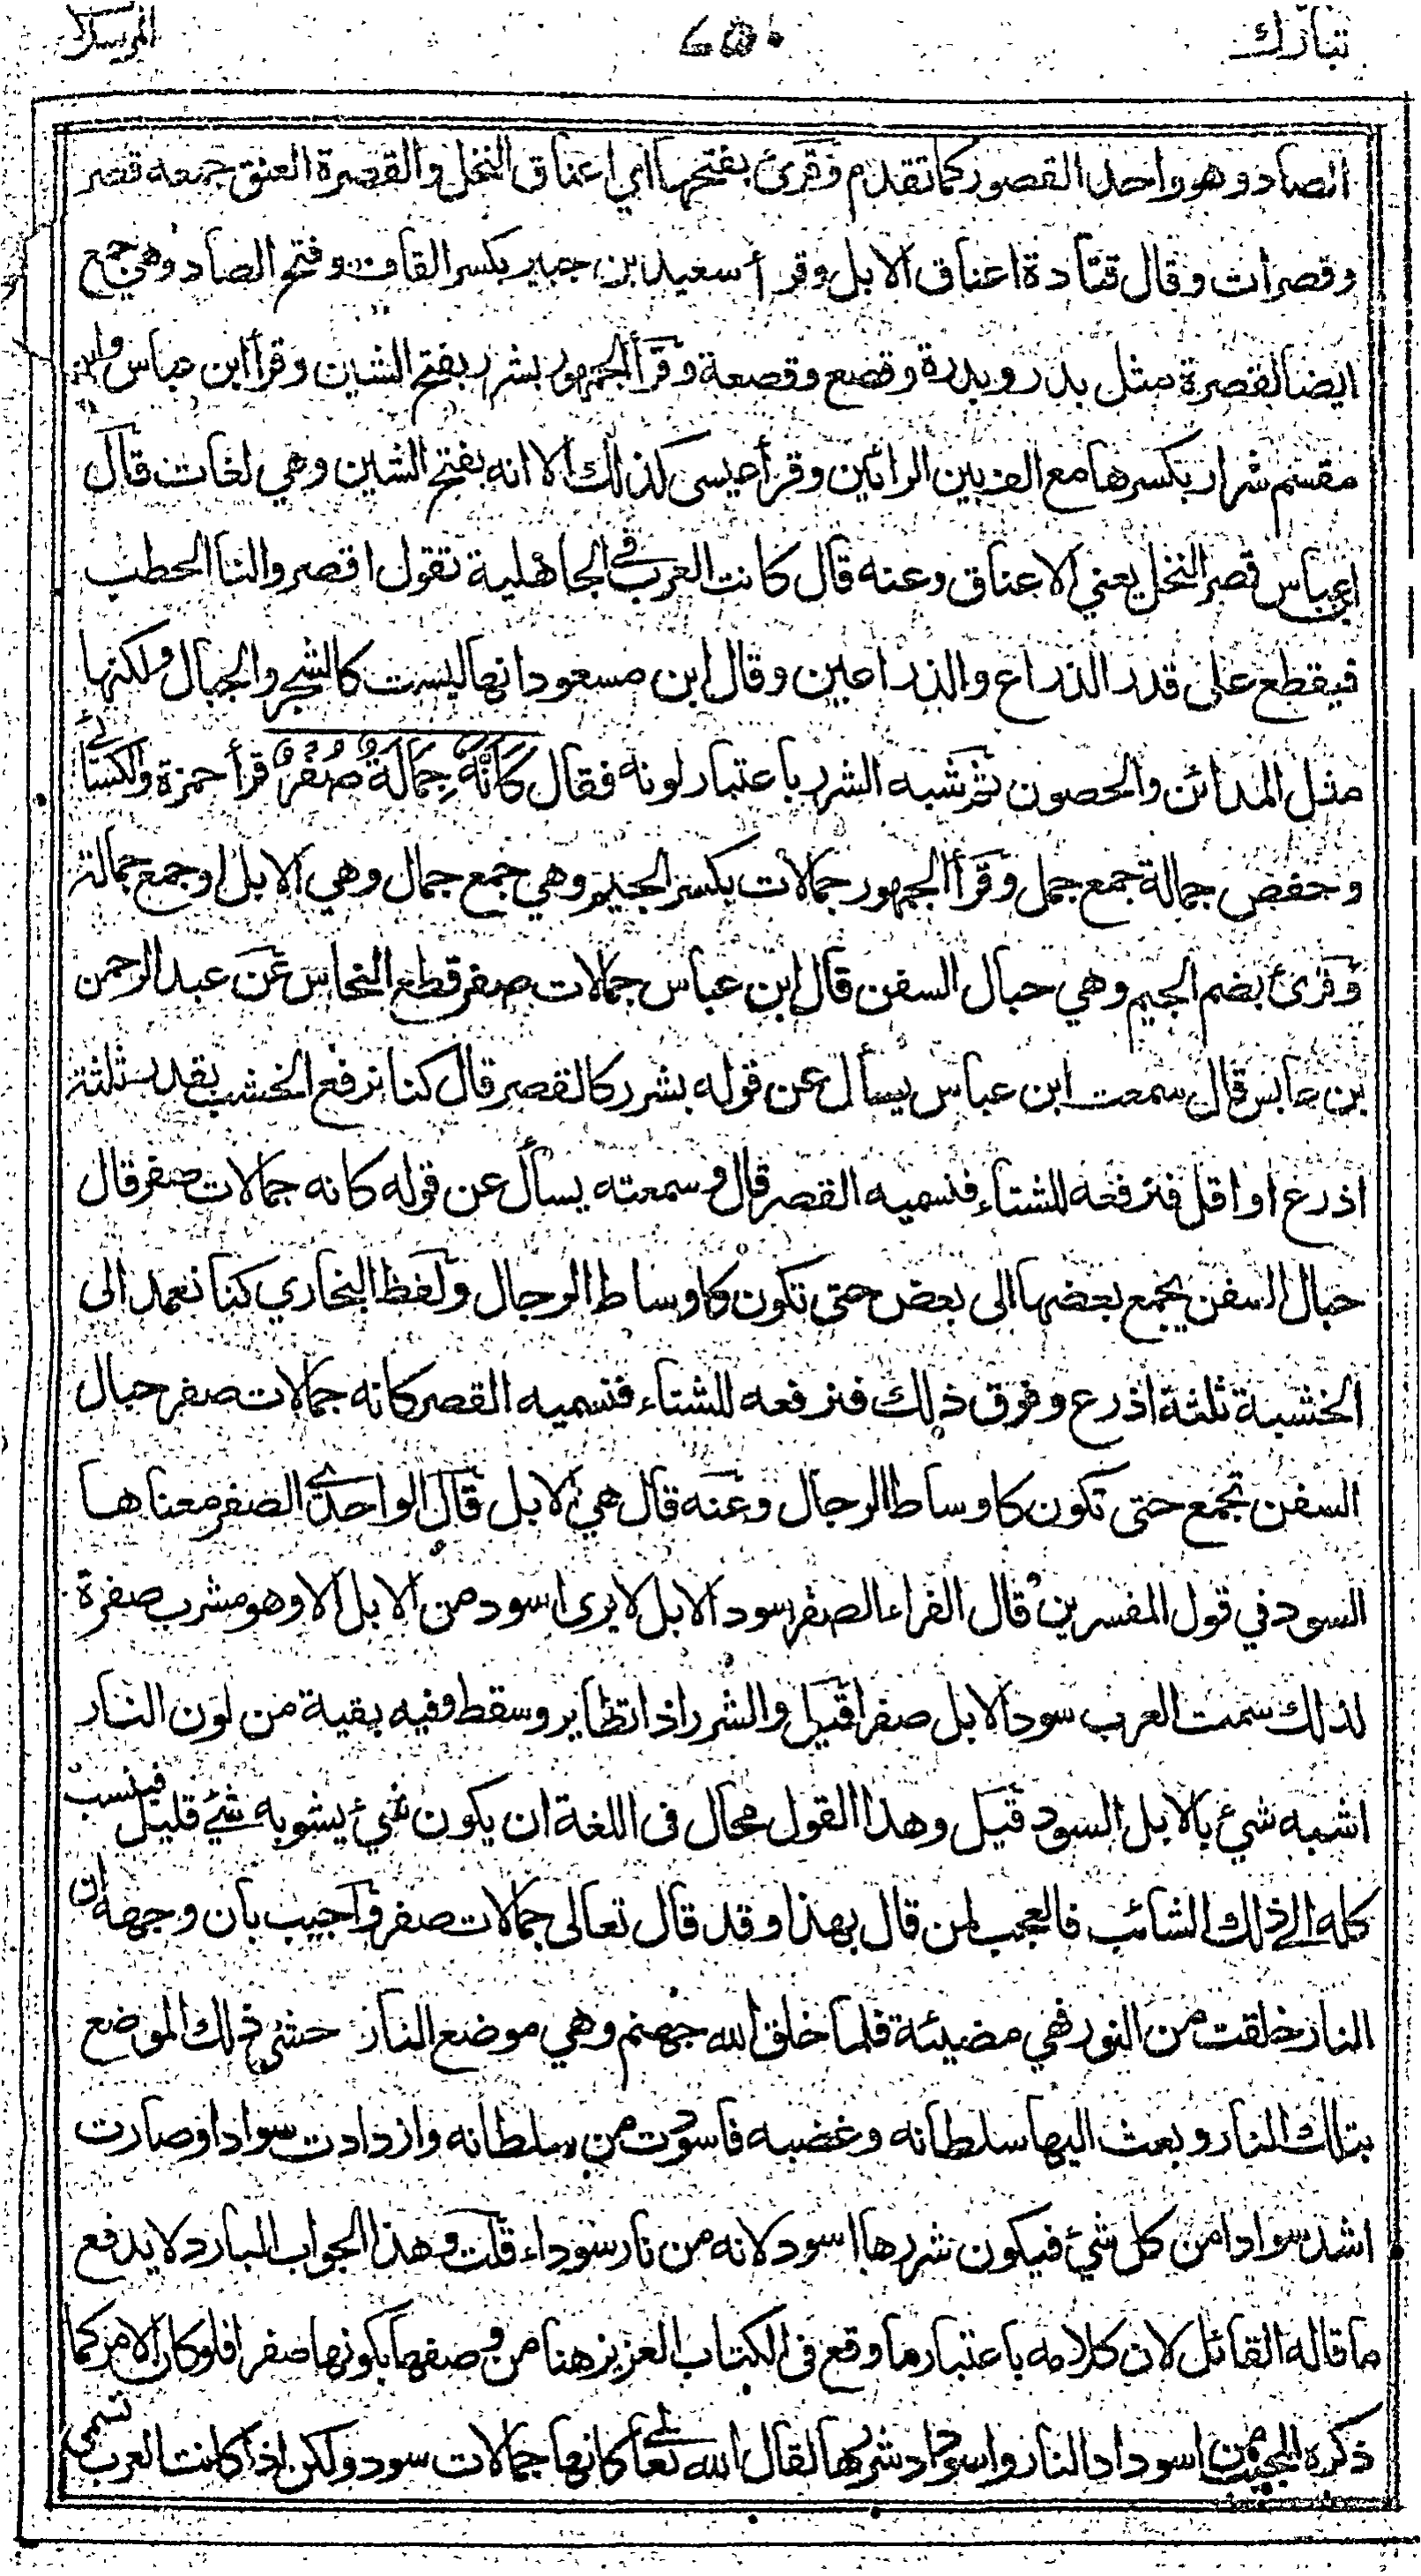 تبارك ٤٥٠ المرسلات
الصاد وهو واحد القصور كما تقدم وقرئ بفتحها اي اعناق النخل والقصرة العنق جمعه قصر
وقصرات وقال قتادة اعناق الابل وقرأ سعيد بن جبير بكسر القاف وفتح الصاد وهي جمع
ايضا لقصرة مثل بدر وبدرة وقصع وقصعة وقرأ الجمهور بشرر بفتح الشين وقرأ ابن عباس وابن
مقسم شرار بكسرها مع الف بين الرائين وقرأ عيسى كذلك الا انه بفتح الشين وهي لغات قال
ابن عباس قصر النخل يعني الاعناق وعنه قال كانت العرب في الجاهلية تقول اقصروا لنا الحطب
فيقطع على قدر الذراع والذراعين وقال ابن مسعود انها ليست كالشجر والجبال ولكنها
مثل المدائن والحصون ثم شبه الشرر باعتبار لونه فقال كَاَنَّهٗ جِمَالَةٌ صُفْرٌ قرأ حمزة والكسائي
وحفص جمالة جمع جمل وقرأ الجمهور جمالات بكسر الجيم وهي جمع جمال وهي الابل او جمع جمالة
وقرئ بضم الجيم وهي حبال السفن قال ابن عباس جمالات صفر قطع النحاس عن عبد الرحمن
بن عابس قال سمعت ابن عباس يسأل عن قوله بشرر كالقصر قال كنا نرفع الخشب بقدر ثلثة
اذرع او اقل فنرفعه للشتاء فنسميه القصر قال وسمعته يسأل عن قوله كانه جمالات صفر قال
حبال السفن يجمع بعضها الى بعض حتى تكون كاوساط الرجال ولفظ البخاري كنا نعمد الى
الخشبة ثلثة اذرع وفوق ذلك فنرفعه للشتاء فنسميه القصر كانه جمالات صفر حبال
السفن تجمع حتى تكون كاوساط الرجال وعنه قال هي الابل قال الواحدي الصفر معناها
السود في قول المفسرين قال الفراء الصفر سود الابل لا يرى اسود من الابل الا وهو مشرب صفرة
لذلك سمت العرب سود الابل صفرا قيل والشرر اذا تطاير وسقط وفيه بقية من لون النار
اشبه شيء بالابل السود قيل وهذا القول محال في اللغة ان يكون شيء يشوبه شيء قليل فينسب
كله الى ذلك الشائب فالعجب لمن قال بهذا وقد قال تعالى جمالات صفر واجيب بان وجهه ان
النار خلقت من النور فهي مضيئة فلما خلق الله جهنم وهي موضع النار حشي ذلك الموضع
بتلك النار وبعث اليها سلطانه وغضبه فاسودت من سلطانه وازدادت سوادا وصارت
اشد سوادا من كل شيء فيكون شررها اسود لانه من نار سوداء قلت وهذا الجواب البارد لا يدفع
ما قاله القائل لان كلامه باعتبار ما وقع في الكتاب العزيز هنا من وصفها بكونها صفرا فلو كان الامر كما
ذكره المجيب من اسوداد النار واسوداد شررها لقال الله تعالى كانها جمالات سود ولكن اذا كانت العرب تسمي